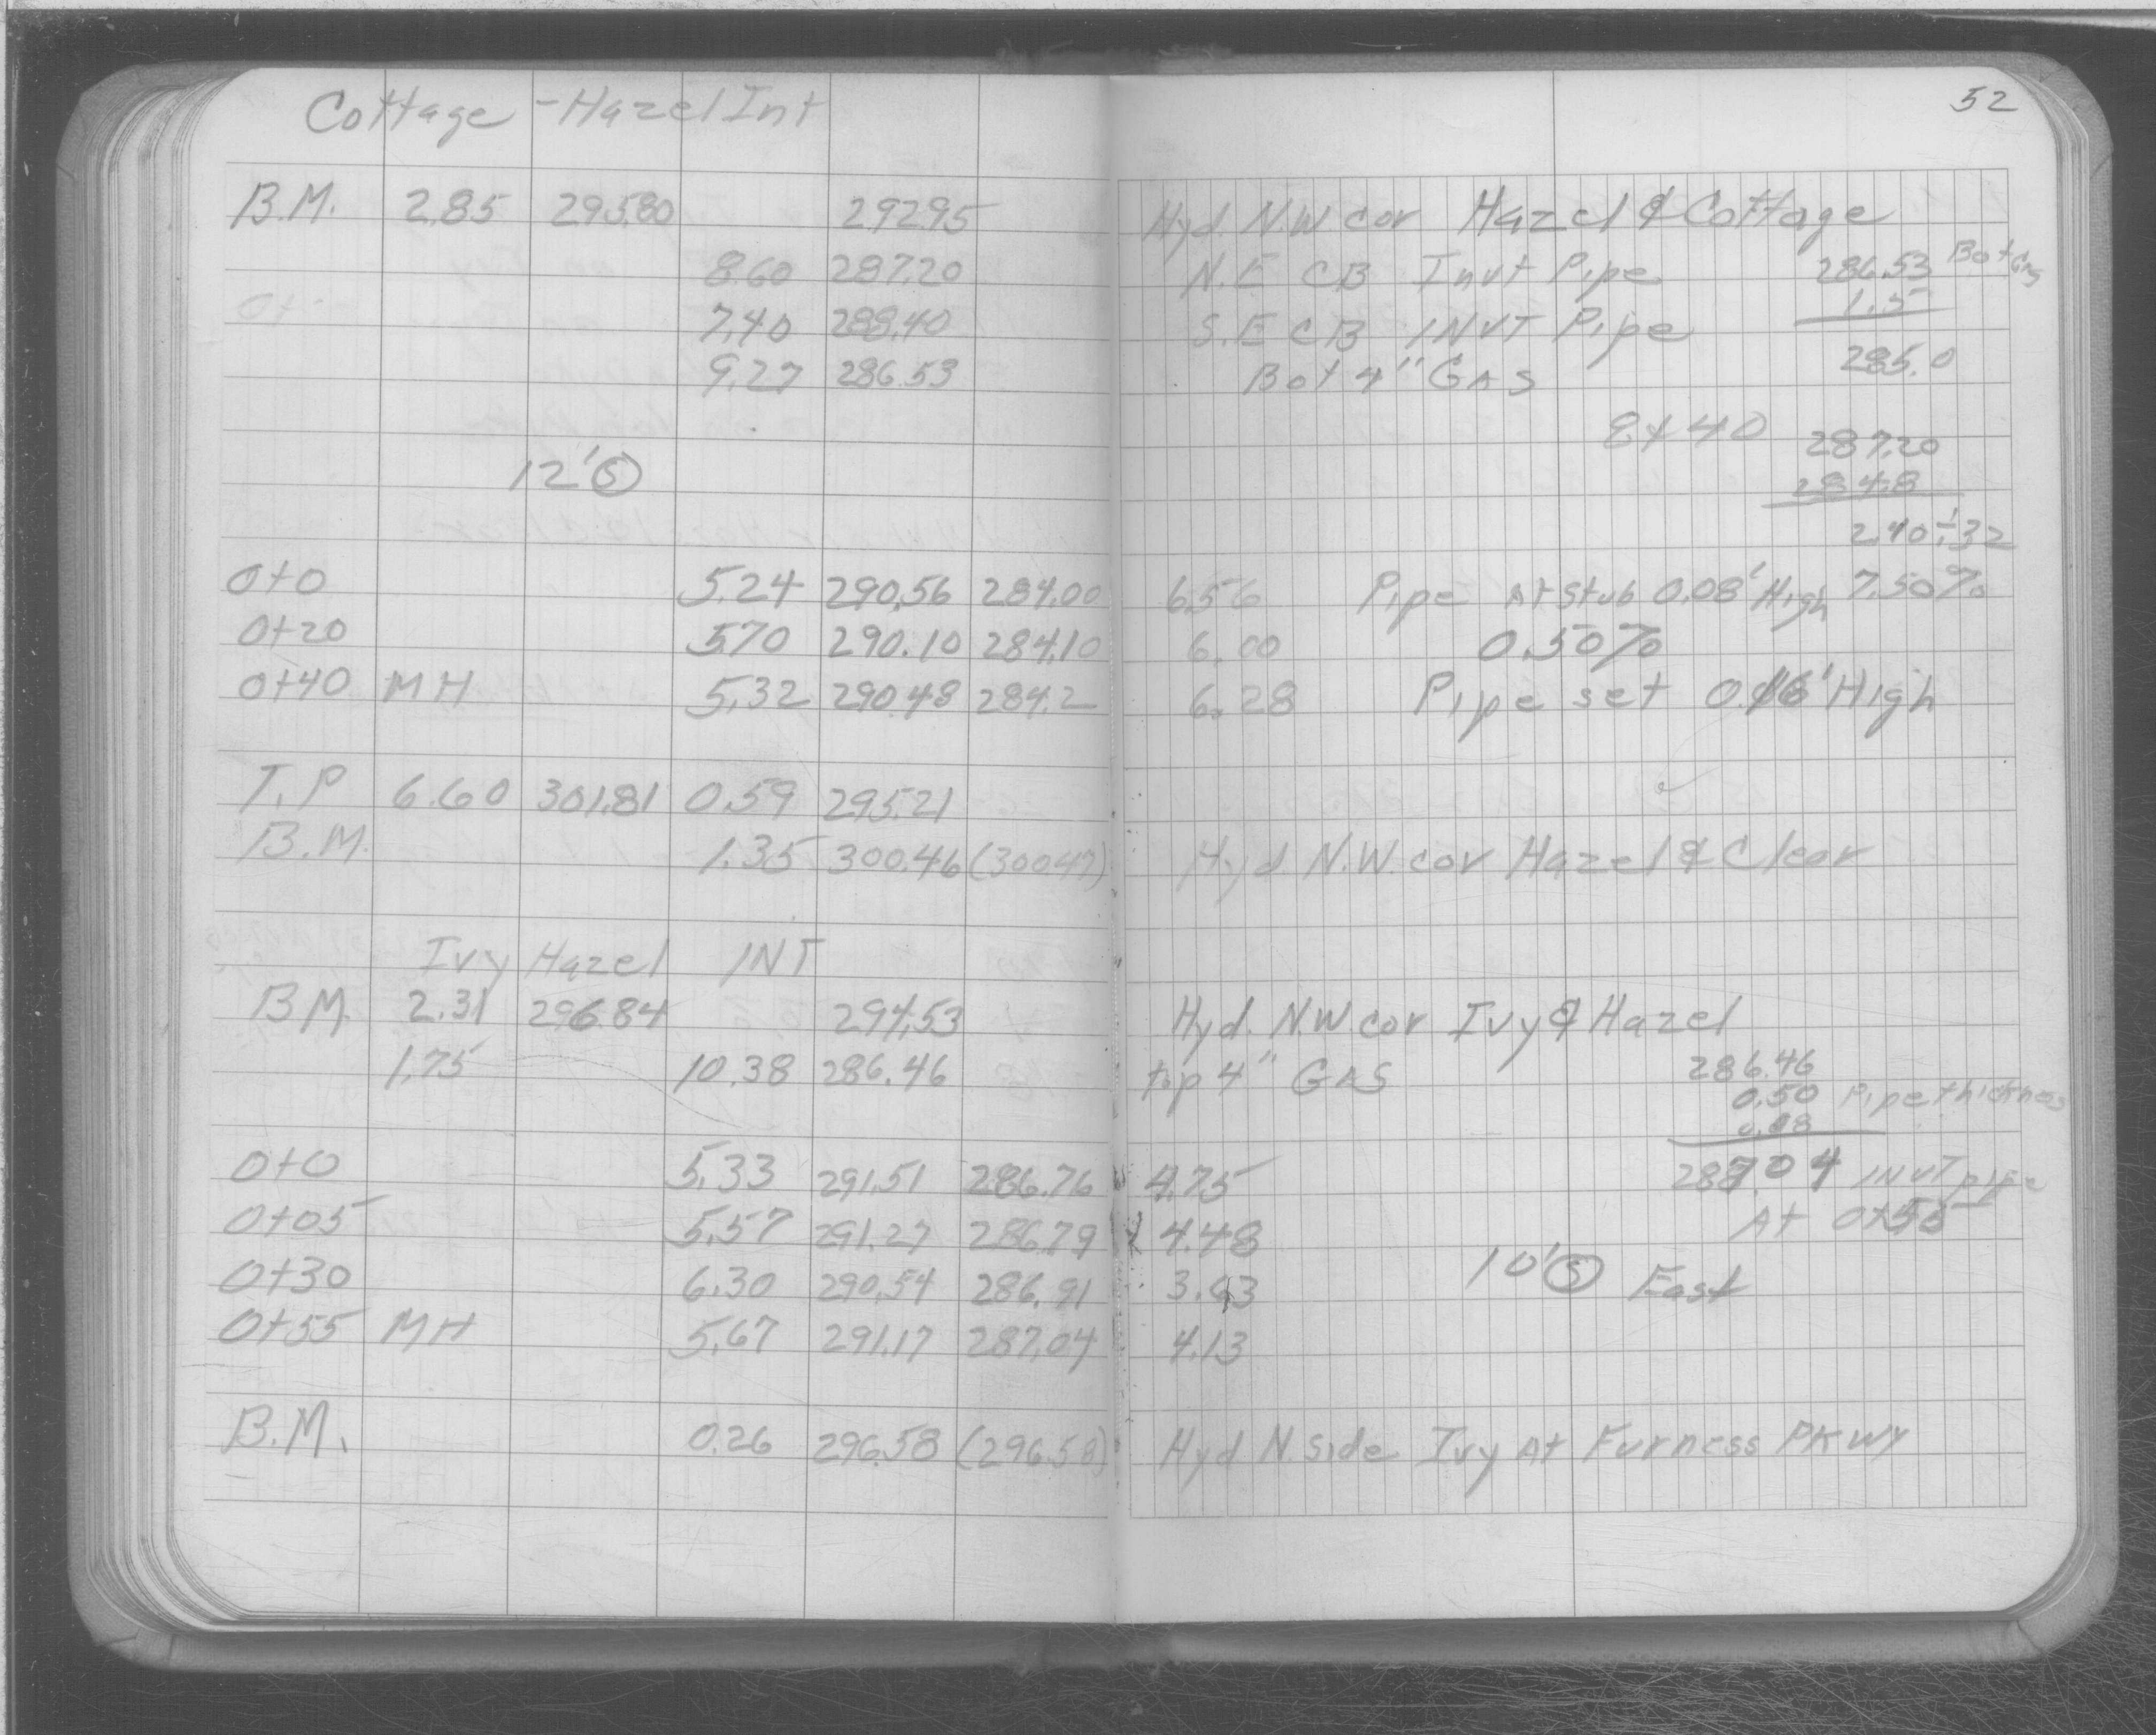 52
Cottage - Hazel Int
B.M. 2.85 295.80 292.95 Hyd. N.W cor Hazel & Cottage
8.60 287.20 N.E CB Invt Pipe 286.53 Bot Gas
7.40 288.40 S.E CB INVT Pipe 1.5
9.27 286.53 Bot 4" GAS 285.0
40 287.20
12' S 284.8
2.40 ÷ 32
0+0 5.24 290.56 284.00 6.56 Pipe At Stub 0.08' High 7.50%
0+20 5.70 290.10 284.10 6.00 0.50%
0+40 MH 5.32 290.48 284.2 6.28 Pipe set 0.16' High
T.P 6.60 301.81 0.59 295.21
B.M. 1.35 300.46 (300.47) Hyd N.W. cor Hazel & Clear
Ivy Hazel INT
B.M. 2.31 296.84 294.53 Hyd. N.W cor Ivy & Hazel
1.75 10.38 286.46 top 4" GAS 286.46
0.50 Pipe thickness
0.08
0+0 5.33 291.51 286.76 4.75 287.04 INVT pipe
0+05 5.57 291.27 286.79 4.48 At 0+55
0+30 6.30 290.54 286.91 3.63 10' S East
0+55 MH 5.67 291.17 287.04 4.13
B.M. 0.26 296.58 (296.58) Hyd N. Side Ivy At Furness PKWY